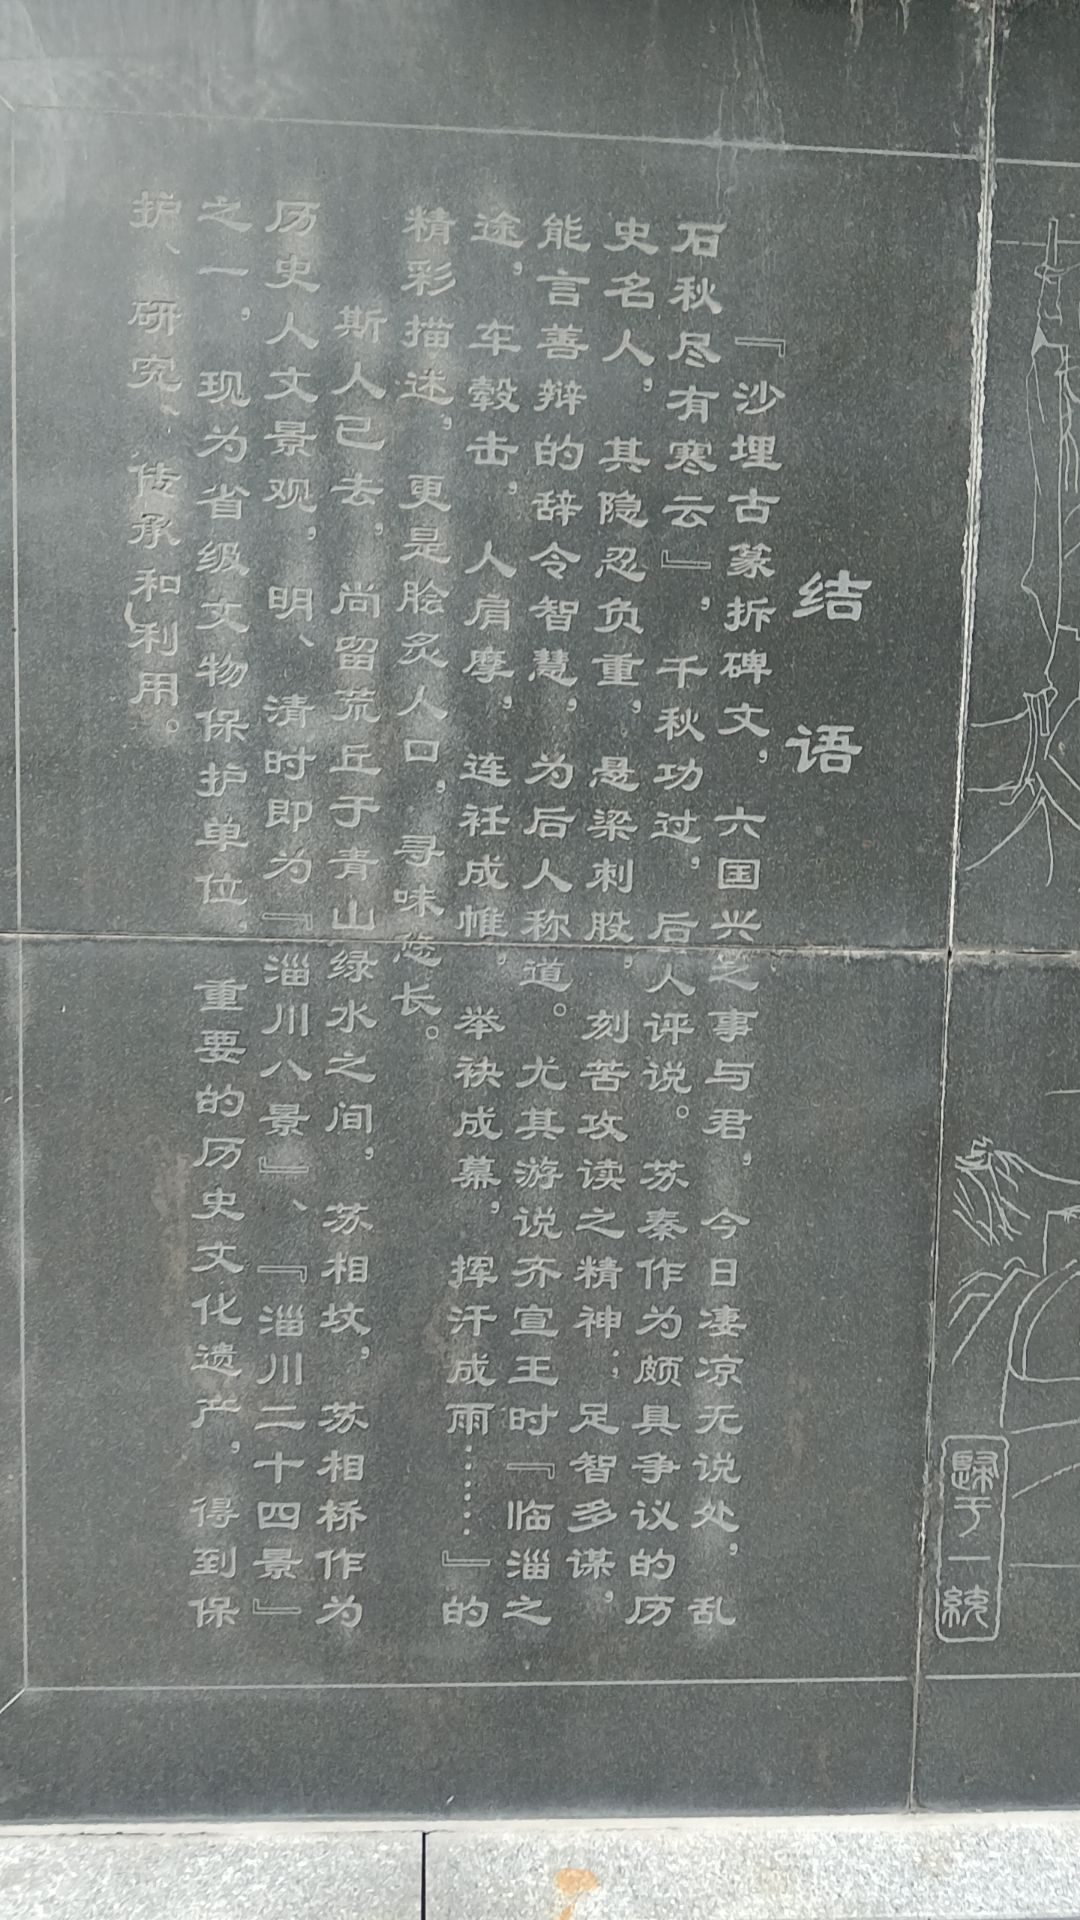 结语
『沙埋古篆拆碑文，六国兴之事与君，今日凄凉无说处，乱
石秋尽有寒云』，千秋功过，后人评说。苏秦作为颇具争议的历
史名人，其隐忍负重，悬梁刺股，刻苦攻读之精神；足智多谋，
能言善辩的辞令智慧，为后人称道。尤其游说齐宣王时『临淄之
途，车毂击，人肩摩，连衽成帷，举袂成幕，挥汗成雨……』的
精彩描述，更是脍炙人口，寻味悠长。
斯人已去，尚留荒丘于青山绿水之间，苏相坟，苏相桥作为
历史人文景观，明、清时即为『淄川八景』、『淄川二十四景』
之一，现为省级文物保护单位，重要的历史文化遗产，得到保
护、研究、传承和利用。
歸于一統